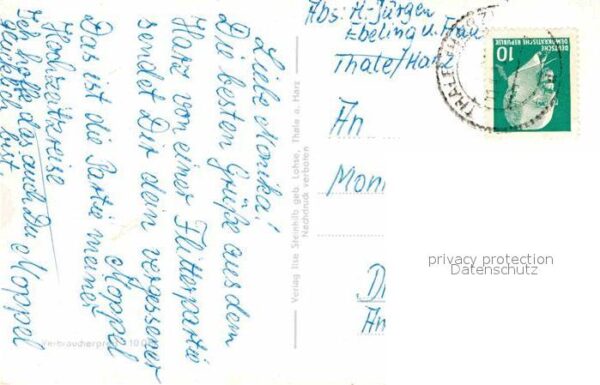 Liebe Monika!
Die besten Grüße aus dem
Harz von einer Flitterpartie
sendet Dir dein vergessener
Moppel
Das ist die Partie meiner
Hochzeitsreise
Ich hoffe das auch Du Moppel
glücklich bist.
Verlag Ilse Steinhilb geb. Lohse, Thale a. Harz
Nachdruck verboten
Verbraucherpreis
Abs: H-Jürgen
Ebeling u. Frau
Thale/Harz
An
Mon
D
An
10
DEUTSCHE
DEMOKRATISCHE REPUBLIK
THALE
privacy protection
Datenschutz